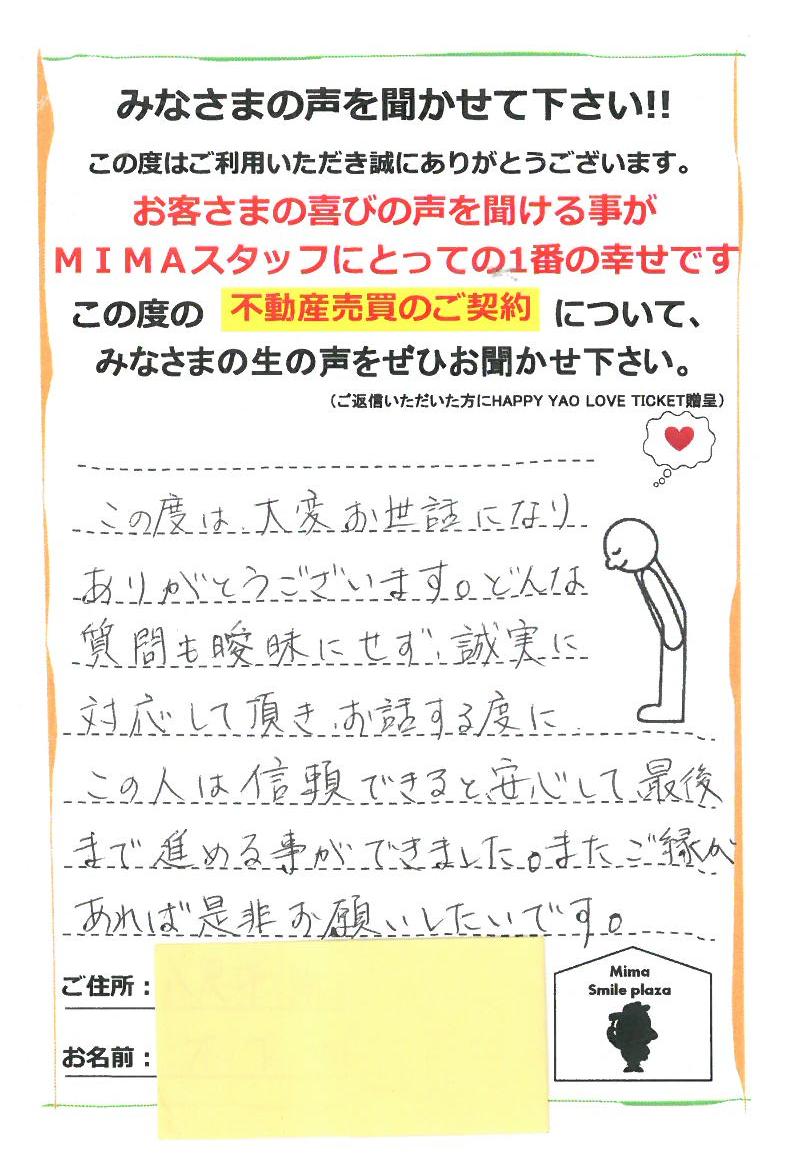 みなさまの声を聞かせて下さい!!
この度はご利用いただき誠にありがとうございます。
お客さまの喜びの声を聞ける事が
ＭＩＭＡスタッフにとっての1番の幸せです
この度の 不動産売買のご契約 について、
みなさまの生の声をぜひお聞かせ下さい。
（ご返信いただいた方にHAPPY YAO LOVE TICKET贈呈）
この度は、大変お世話になり
ありがとうございます。どんな
質問も曖昧にせず、誠実に
対応して頂き、お話する度に
この人は信頼できると、安心して最後
まで進める事ができました。またご縁が
あれば是非お願いしたいです。
ご住所：
お名前：
Mima
Smile plaza